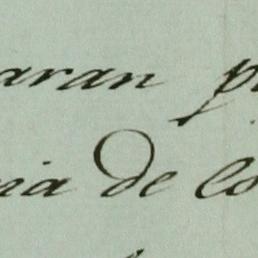 aran p
ia de Co